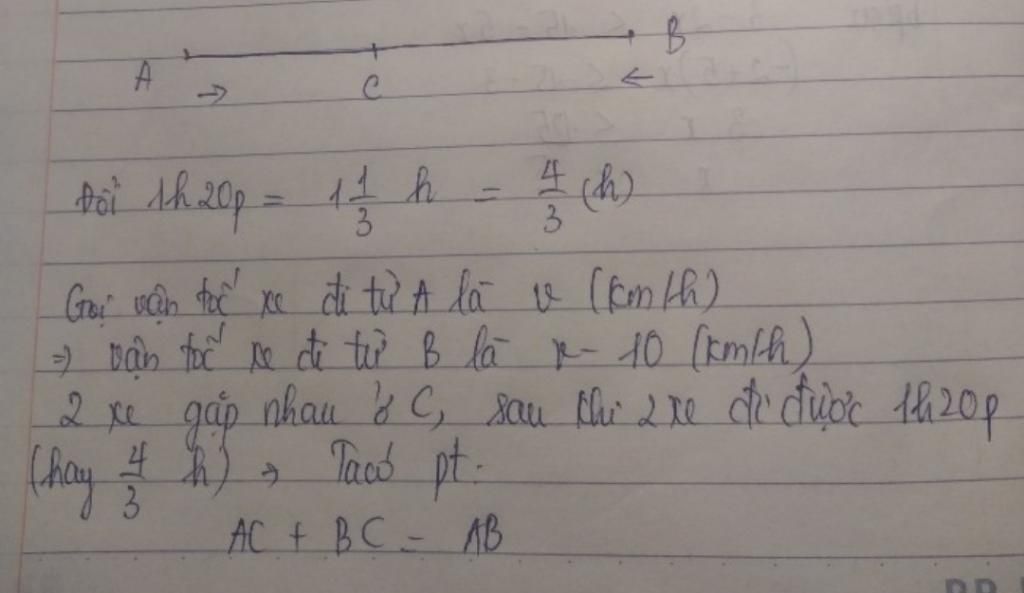 A → C ← B
Đổi 1h20p = 1 1/3 h = 4/3 (h)
Gọi vận tốc xe đi từ A là v (km/h)
=> vận tốc xe đi từ B là v - 10 (km/h)
2 xe gặp nhau ở C, sau khi 2 xe đi được 1h20p
(hay 4/3 h) => Ta có pt:
AC + BC = AB